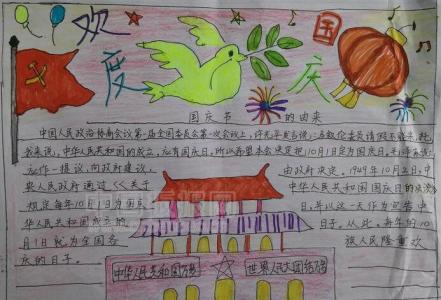 欢度国庆
国庆节的由来
中国人民政治协商会议第一届全国委员会第一次会议上,许广平发言说:"马叙伦委员请假不能来,托
我来说,中华人民共和国的成立,应有国庆日,所以希望本会决定把10月1日定为国庆日。"毛泽东说
应作一提议,向政府建议, 由政府决定。1949年10月2日,中
央人民政府通过《关于 中华人民共和国国庆日的决议
规定每年10月1日为国庆 日,并以这一天作为宣告
华人民共和国成立的 日子。从此,每年的10
月1日就为全国各 族人民隆重欢
庆的日子。
中华人民共和国万岁 世界人民大团结万岁